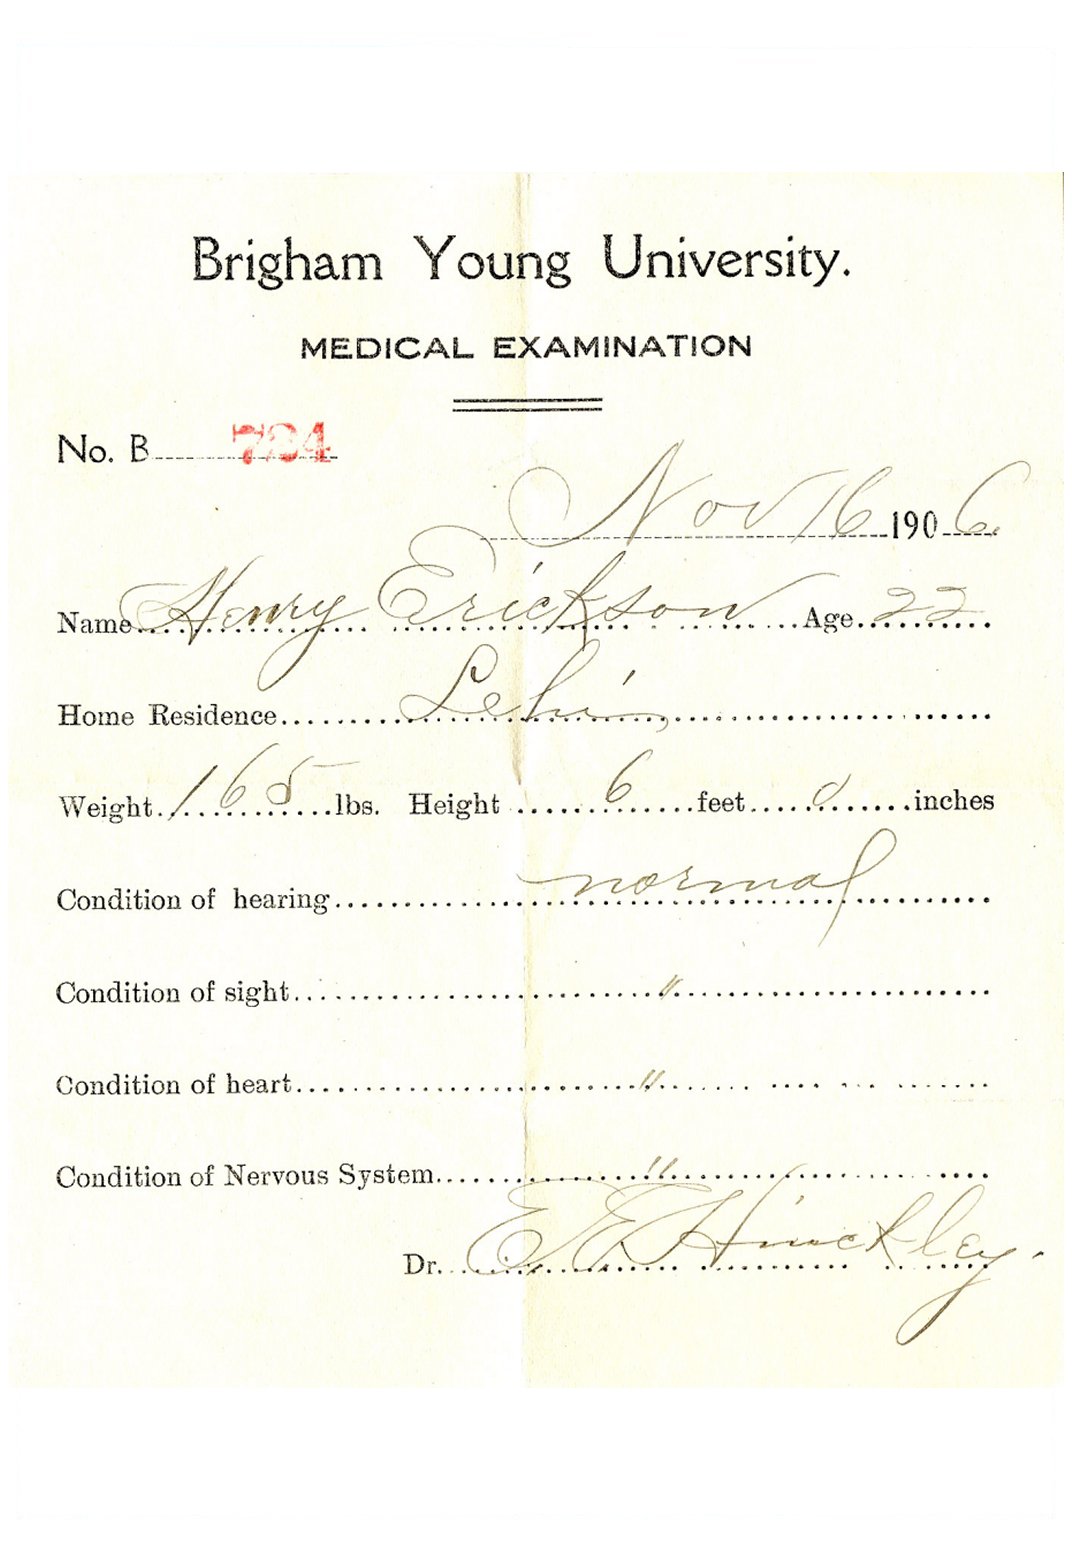 Brigham Young University.
MEDICAL EXAMINATION
No. B 724
Nov 16 1906.
Name Henry Erickson Age 22
Home Residence Lehi,
Weight 165 lbs. Height 6 feet 0 inches
Condition of hearing normal
Condition of sight "
Condition of heart "
Condition of Nervous System "
Dr. E E Hinckley.